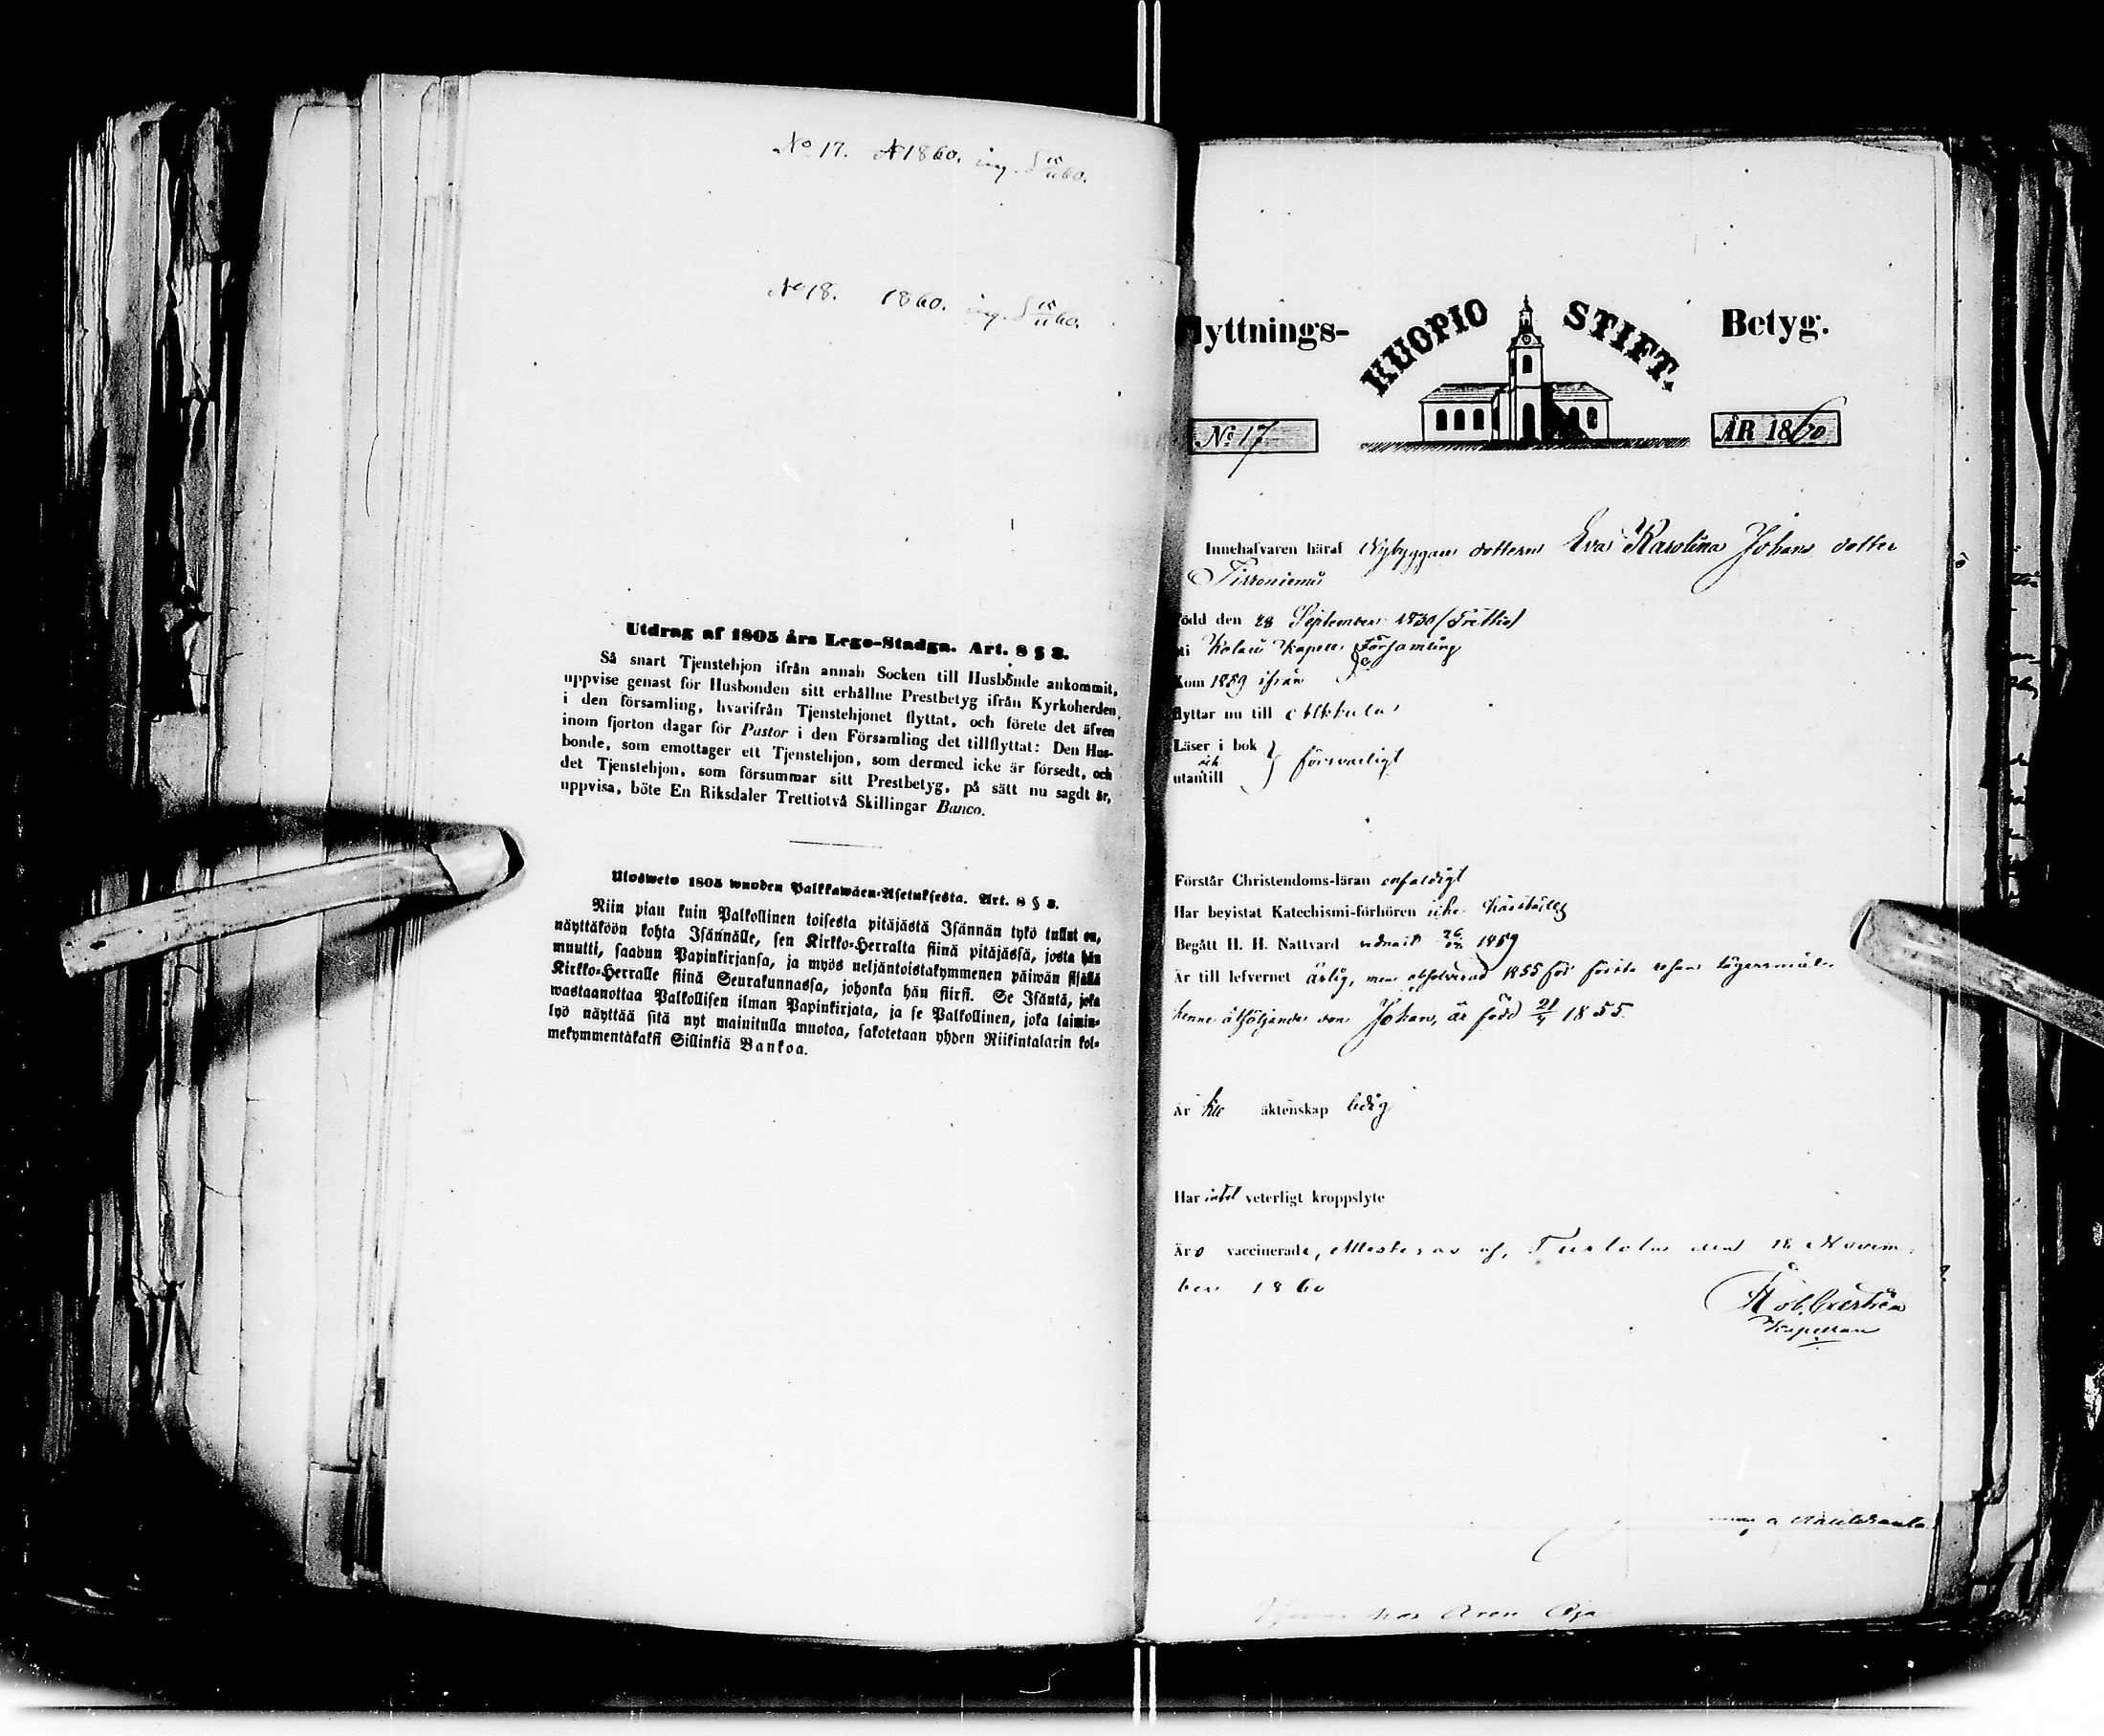 No 17. 1860. ing. 15/11 60.
No 18. 1860. ing. 15/11 60.
Utdrag af 1805 års Lego-Stadga. Art. 8 § 3.
Så snart Tjenstehjon ifrån annan Socken till Husbonde ankommit,
uppvise genast för Husbonden sitt erhållne Prestbetyg ifrån Kyrkoherden
i den församling, hvarifrån Tjenstehjonet flyttat, och förete det äfven
inom fjorton dagar för Pastor i den Församling det tillflyttat: Den Hus-
bonde, som emottager ett Tjenstehjon, som dermed icke är försedt, och
det Tjenstehjon, som försummar sitt Prestbetyg, på sätt nu sagdt är,
uppvisa, böte En Riksdaler Trettiotvå Skillingar Banco.
Ulosweto 1805 wuoden Palkkawäen-Asetuksesta. Art. 8 § 3.
Niin pian kuin Palkollinen toisesta pitäjästä Isännän tykö tullut on,
näyttäköön kohta Isännälle, sen Kirkko-Herralta siinä pitäjässä, josta hän
muutti, saadun Papinkirjansa, ja myös neljäntoistakymmenen päiwän sisällä
Kirkko-Herralle siinä Seurakunnassa, johonka hän siirsi. Se Isäntä, joka
wastaanottaa Palkollisen ilman Papinkirjata, ja se Palkollinen, joka laimin-
lyö näyttää sitä nyt mainitulla muotoa, sakotetaan yhden Riikintalarin kol-
mekymmentäkaksi Sillinkiä Bankoa.
lyttnings- HUOPIO STIFT. Betyg.
No 17 ÅR 1860
Innehafvaren häraf Nybyggare dottern Eva Karolina Johans dotter
Tirroniemi
ödd den 28 September 1830 (Trettio)
i Kolari Kapell Församling
Kom 1859 ifrån
flyttar nu till
Läser i bok
och
utantill } försvarligt
Förstår Christendoms-läran enfaldigt
Har bevistat Katechismi-förhören icke
Begått H. H. Nattvard 1859
Är till lefvernet ärlig, men absolverad 1855 för första resans lägersmål.
henne åtföljande son Johan, är född 21/4 1855.
Är till äktenskap ledig
Har intet veterligt kroppslyte
Äro vaccinerade, attesteras af, Turtola den 12 Novem-
ber 1860
Kapellan